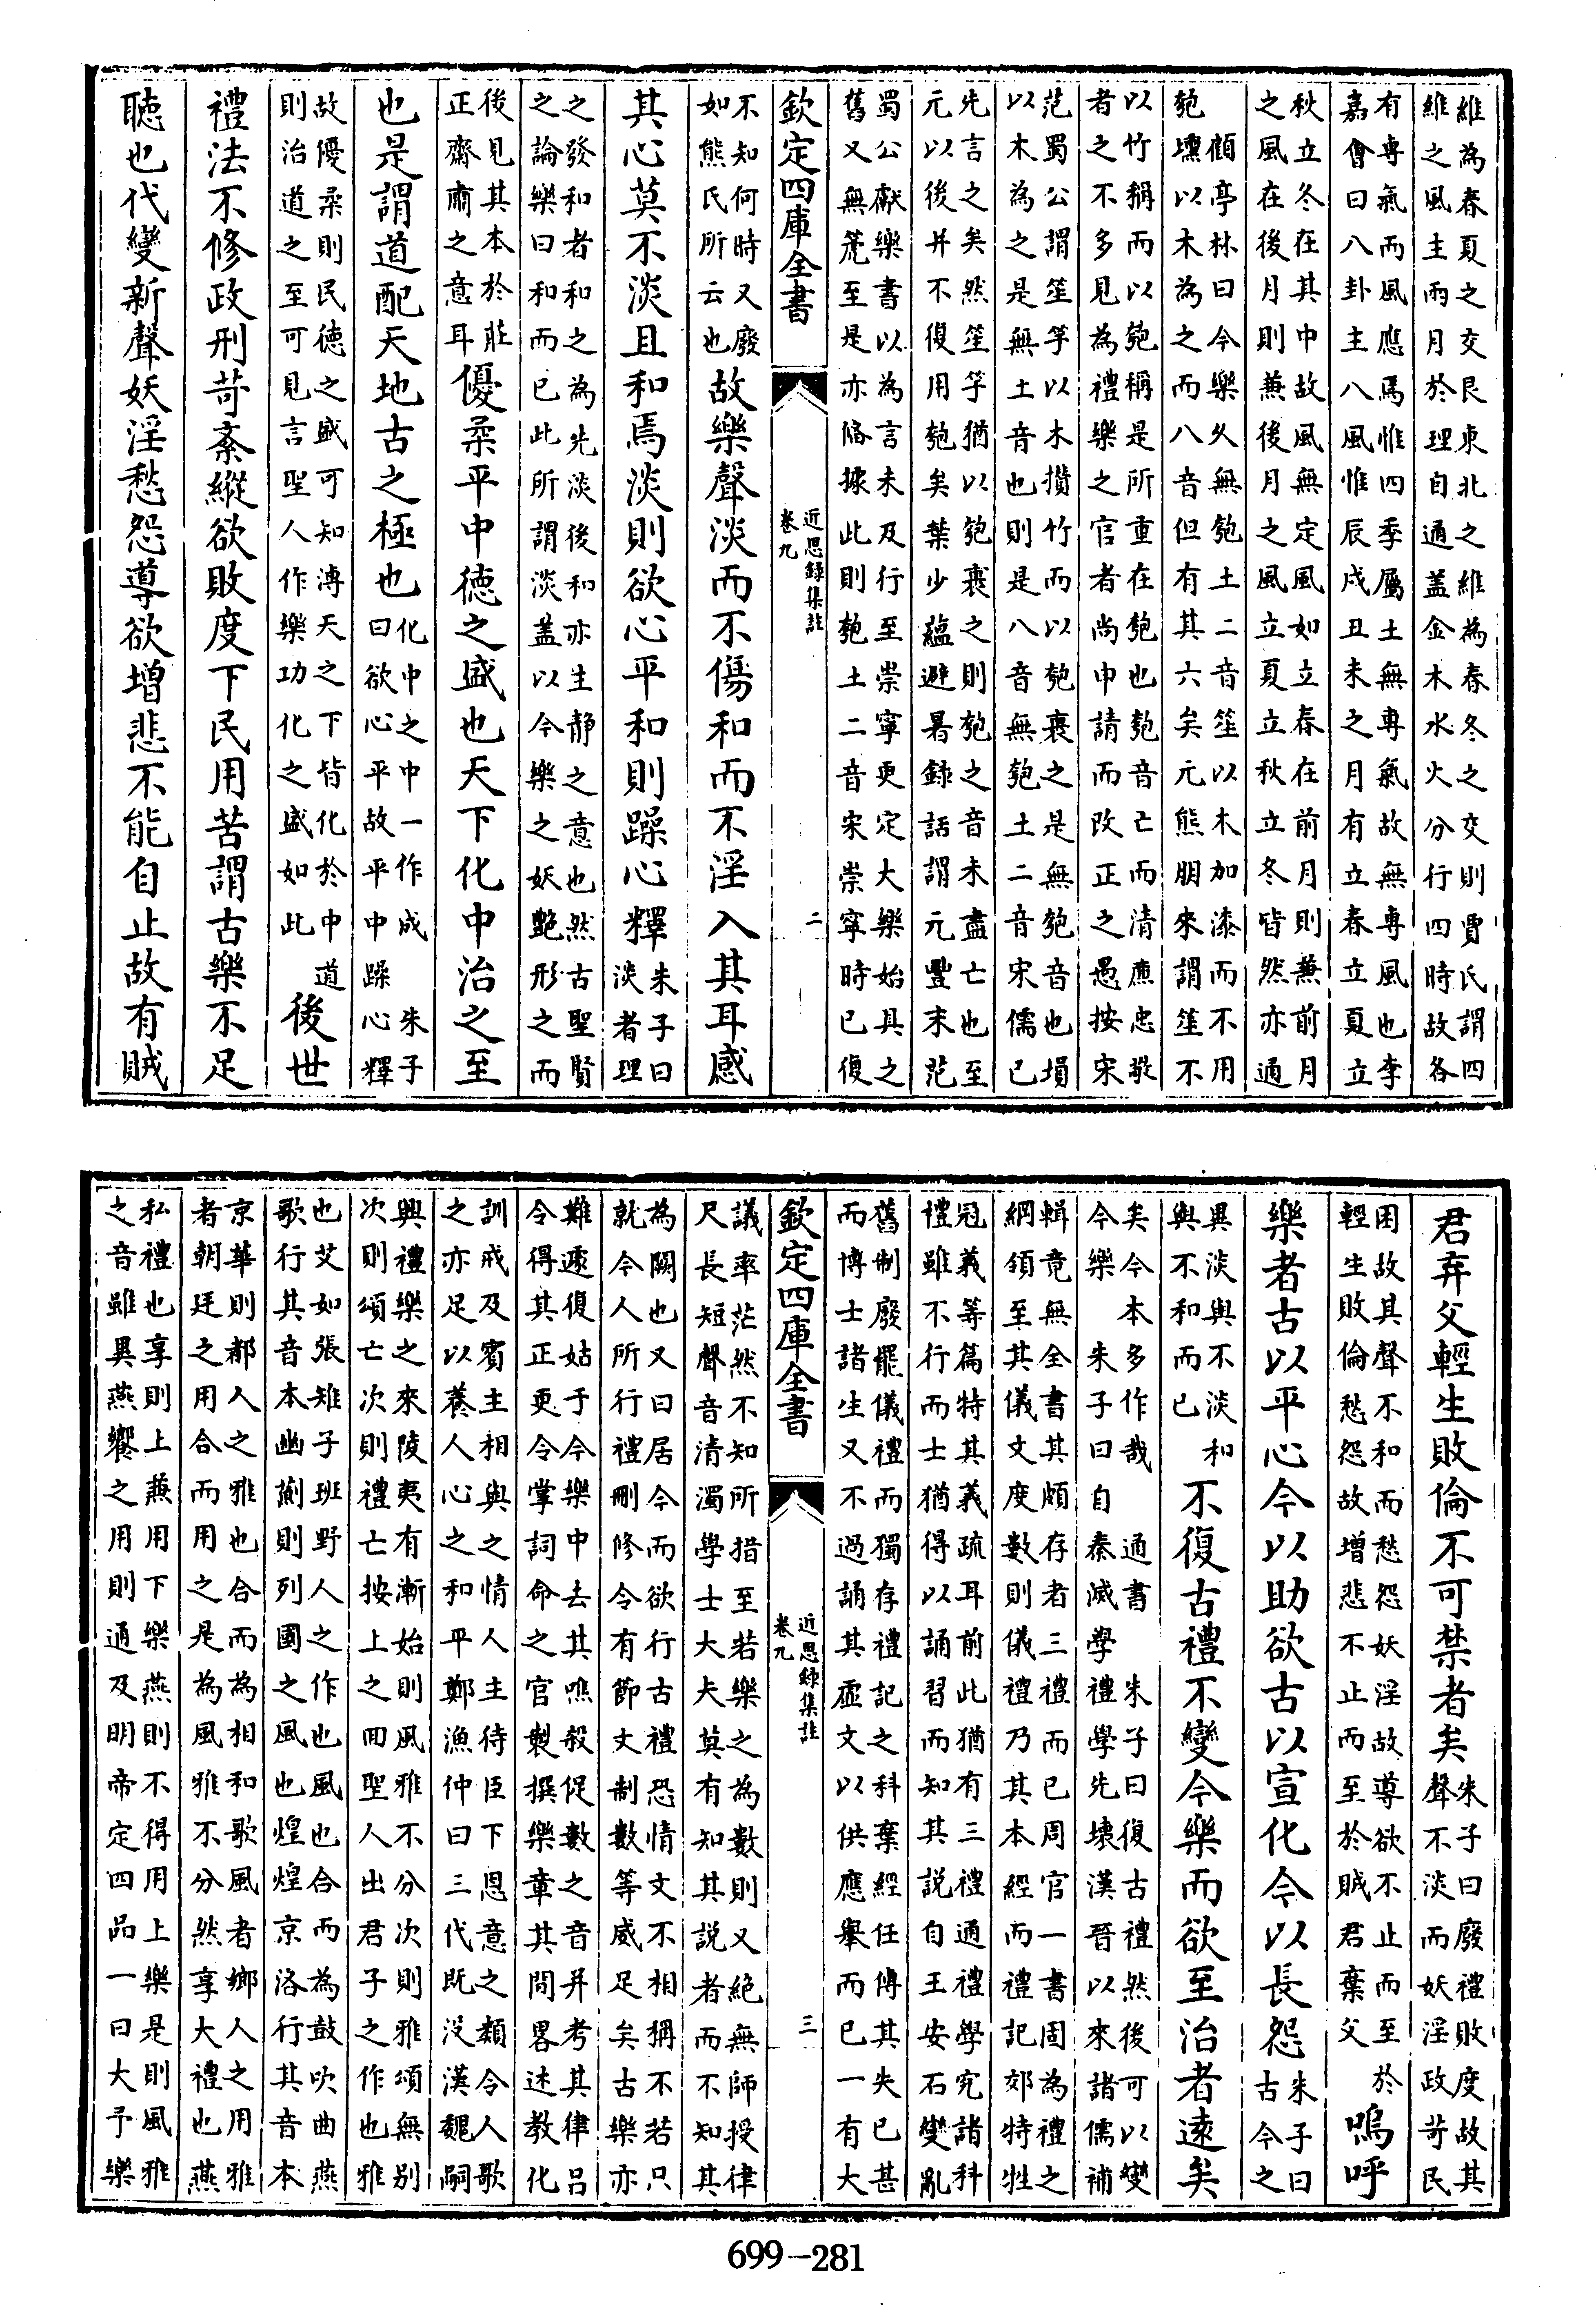 維為春夏之交艮東北之維為春冬之交則賈氏謂四
維之風主兩月於理自通盖金木水火分行四時故各
有專氣而風應焉惟四季屬土無專氣故無專風也李
嘉會曰八卦主八風惟辰戌丑未之月有立春立夏立
秋立冬在其中故風無定風如立春在前月則兼前月
之風在後月則兼後月之風立夏立秋立冬皆然亦通
顧亭林曰今樂久無匏土二音笙以木加漆而不用
匏壎以木為之而八音但有其六矣元熊朋來謂笙不
以竹稱而以匏稱是所重在匏也匏音亡而清㢘忠敬
者之不多見為禮樂之官者尚申請而改正之愚按宋
范蜀公謂笙竽以木攢竹而以匏裹之是無匏音也塤
以木為之是無土音也則是八音無匏土二音宋儒已
先言之矣然笙竽猶以匏裹之則匏之音未盡亡也至
元以後并不復用匏矣葉少藴避暑録話謂元豐末范
蜀公獻樂書以為言未及行至崇寧更定大樂始具之
舊又無箎至是亦脩據此則匏土二音宋崇寧時已復
欽定四庫全書
近思錄集註
卷九
二
不知何時又廢
如熊氏所云也
故樂聲淡而不傷和而不淫入其耳感
其心莫不淡且和焉淡則欲心平和則躁心釋
朱子曰
淡者理
之發和者和之為先淡後和亦生静之意也然古聖賢
之論樂曰和而已此所謂淡盖以今樂之妖艷形之而
後見其本於莊
正齋肅之意耳
優柔平中德之盛也天下化中治之至
也是謂道配天地古之極也
化中之中一作成 朱子
曰欲心平故平中躁心釋
故優柔則民德之盛可知溥天之下皆化於中道
則治道之至可見言聖人作樂功化之盛如此
後世
禮法不修政刑苛紊縱欲敗度下民用苦謂古樂不足
聽也代變新聲妖淫愁怨導欲增悲不能自止故有賊
君弃父輕生敗倫不可禁者矣
朱子曰廢禮敗度故其
聲不淡而妖淫政苛民
困故其聲不和而愁怨妖淫故導欲不止而至於
輕生敗倫愁怨故增悲不止而至於賊君棄父
嗚呼
樂者古以平心今以助欲古以宣化今以長怨
朱子曰
古今之
異淡與不淡和
與不和而已
不復古禮不變今樂而欲至治者遠矣
矣今本多作哉 通書 朱子曰復古禮然後可以變
今樂 朱子曰自秦滅學禮學先壞漢晉以來諸儒補
輯竟無全書其頗存者三禮而已周官一書固為禮之
綱領至其儀文度數則儀禮乃其本經而禮記郊特牲
冠義等篇特其義疏耳前此猶有三禮通禮學究諸科
禮雖不行而士猶得以誦習而知其說自王安石變亂
舊制廢罷儀禮而獨存禮記之科棄經任傳其失已甚
而博士諸生又不過誦其虛文以供應舉而已一有大
欽定四庫全書
近思錄集註
卷九
三
議率茫然不知所措至若樂之為數則又絕無師授律
尺長短聲音清濁學士大夫莫有知其説者而不知其
為闕也又曰居今而欲行古禮恐情文不相稱不若只
就今人所行禮刪修令有節文制數等威足矣古樂亦
難遽復姑于今樂中去其噍殺促數之音并考其律呂
令得其正更令掌詞命之官製撰樂章其間畧述教化
訓戒及賓主相與之情人主待臣下恩意之類令人歌
之亦足以養人心之和平鄭漁仲曰三代既没漢魏嗣
興禮樂之來陵夷有漸始則風雅不分次則雅頌無别
次則頌亡次則禮亡按上之回聖人出君子之作也雅
也艾如張雉子班野人之作也風也合而為鼓吹曲燕
歌行其音本幽薊則列國之風也煌煌京洛行其音本
京華則都人之雅也合而為相和歌風者鄉人之用雅
者朝廷之用合而用之是為風雅不分然享大禮也燕
私禮也享則上兼用下樂燕則不得用上樂是則風雅
之音雖異燕饗之用則通及明帝定四品一曰大予樂
699-281